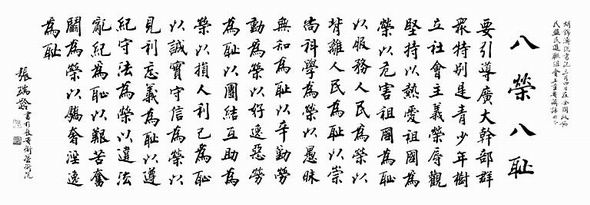 胡錦濤總書記三月四日在全國政協
民盟民進聯組會上重要講話
八榮八耻
要引導廣大幹部群
眾特別是青少年樹
立社會主義榮辱觀
堅持以熱愛祖國為
榮以危害祖國為耻
以服務人民為榮以
背離人民為耻以崇
尚科學為榮以愚昧
無知為耻以辛勤勞
動為榮以好逸惡勞
為耻以團結互助為
榮以損人利己為耻
以誠實守信為榮以
見利忘義為耻以遵
紀守法為榮以違法
亂紀為耻以艱苦奮
鬥為榮以驕奢淫逸
為耻
張瑞齡書於長安